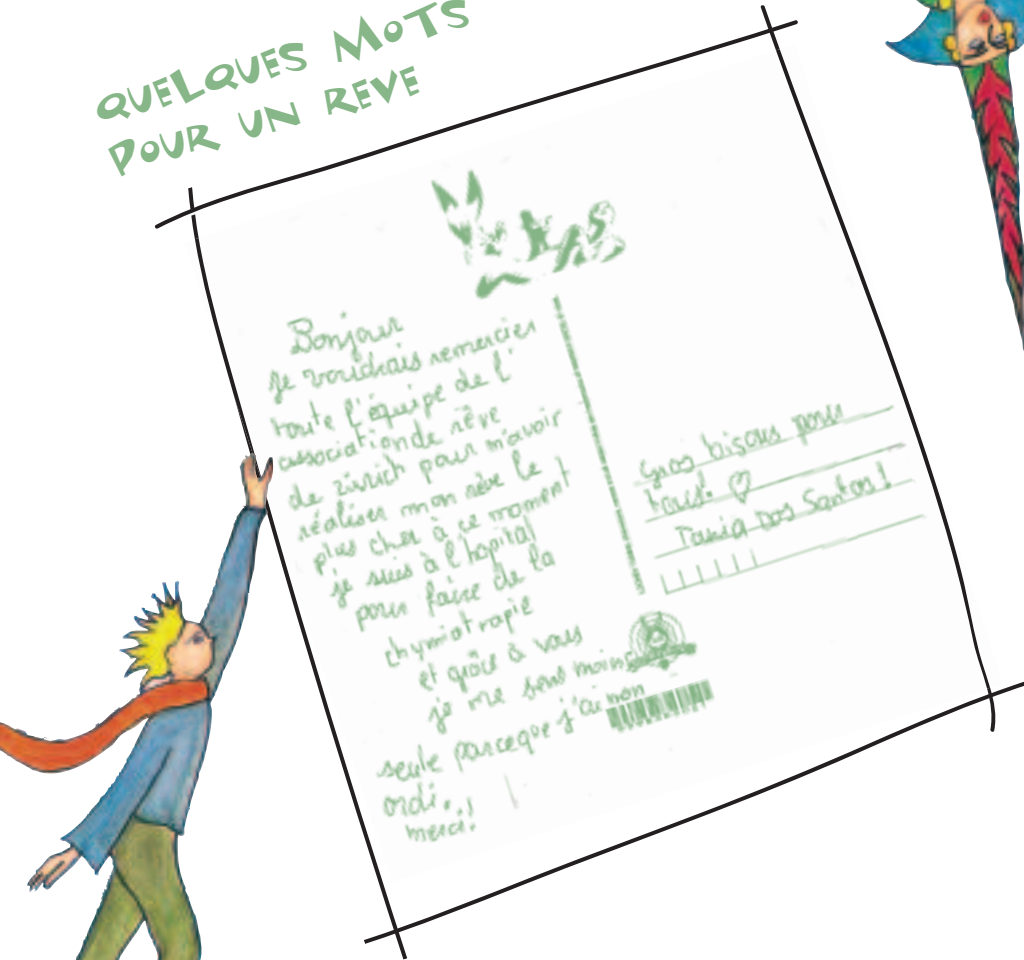 QUELQUES MOTS
POUR UN REVE
Bonjour
je voudrais remercier
toute l'équipe de l'
association de rêve
de zurich pour m'avoir
réaliser mon rêve le
plus cher à ce moment
je suis à l'hopital
pour faire de la
chymiotrapie
et grâce à vous
je me sens moins
seule parceque j'ai mon
ordi.
merci!
Gros bisous pour
tous! ♡
Tania Dos Santos!